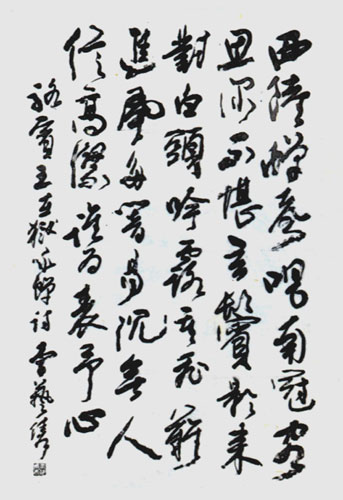 西陸蟬聲唱南冠客
思深不堪玄鬢影來
對白頭吟露重飛難
進風多響易沉無人
信高潔誰為表予心
駱賓王在獄咏蟬詩